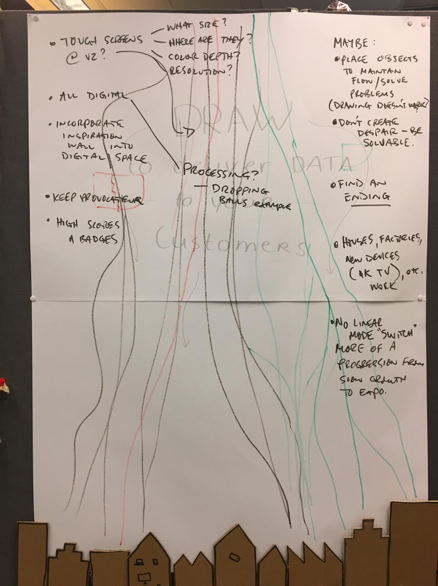 • TOUGH SCREENS @ V2?
WHAT SIZE?
WHERE ARE THEY?
COLOR DEPTH?
RESOLUTION?
• ALL DIGITAL
• INCORPORATE
INSPIRATION
WALL INTO
DIGITAL SPACE
• KEEP PROVOCATEUR
• HIGH SCORES
& BADGES
PROCESSING?
— DROPPING
BALLS EXAMPLE
DRAW
to deliver DATA
to
Customers
MAYBE:
• PLACE OBJECTS
TO MAINTAIN
FLOW/SOLVE
PROBLEMS
(DRAWING DOESN'T WORK?)
• DON'T CREATE
DESPAIR – BE
SOLVABLE.
• FIND AN
ENDING
• HOUSES, FACTORIES,
NEW DEVICES
(4K TV), ETC.
WORK
• NO LINEAR
MODE "SWITCH"
MORE OF A
PROGRESSION FROM
SLOW GROWTH
TO EXPO.